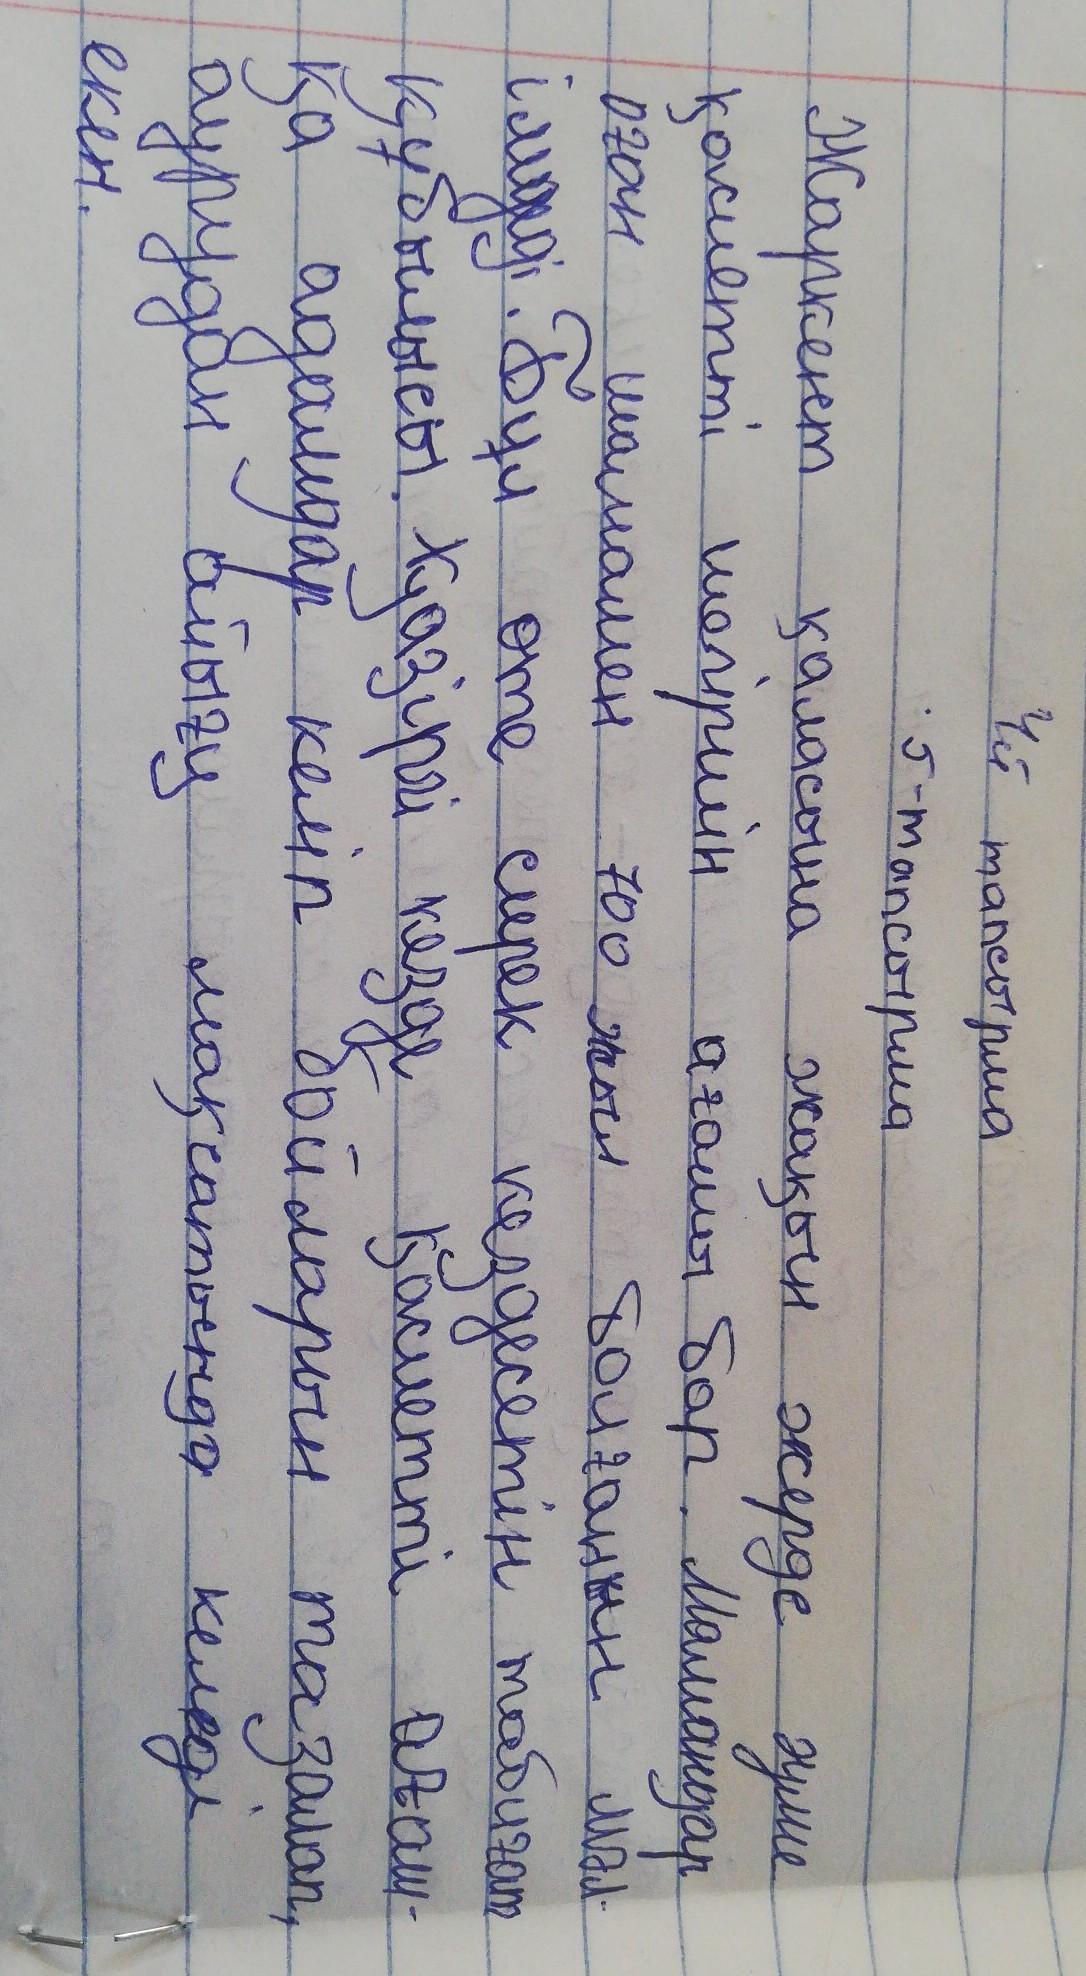 Үй тапсырма
5-тапсырма
Жаркент қаласына жақын жерде әулие
қасиетті шегіршін ағашы бар. Мамандар
оған шамамен 700 жыл болғанын мәл-
імдеді. Бұл өте сирек кездесетін табиғат
құбылысы. Қазіргі кезде қасиетті ағаш-
қа адамдар келіп бойларын тазалап,
аурудан айығу мақсатында келеді
екен.